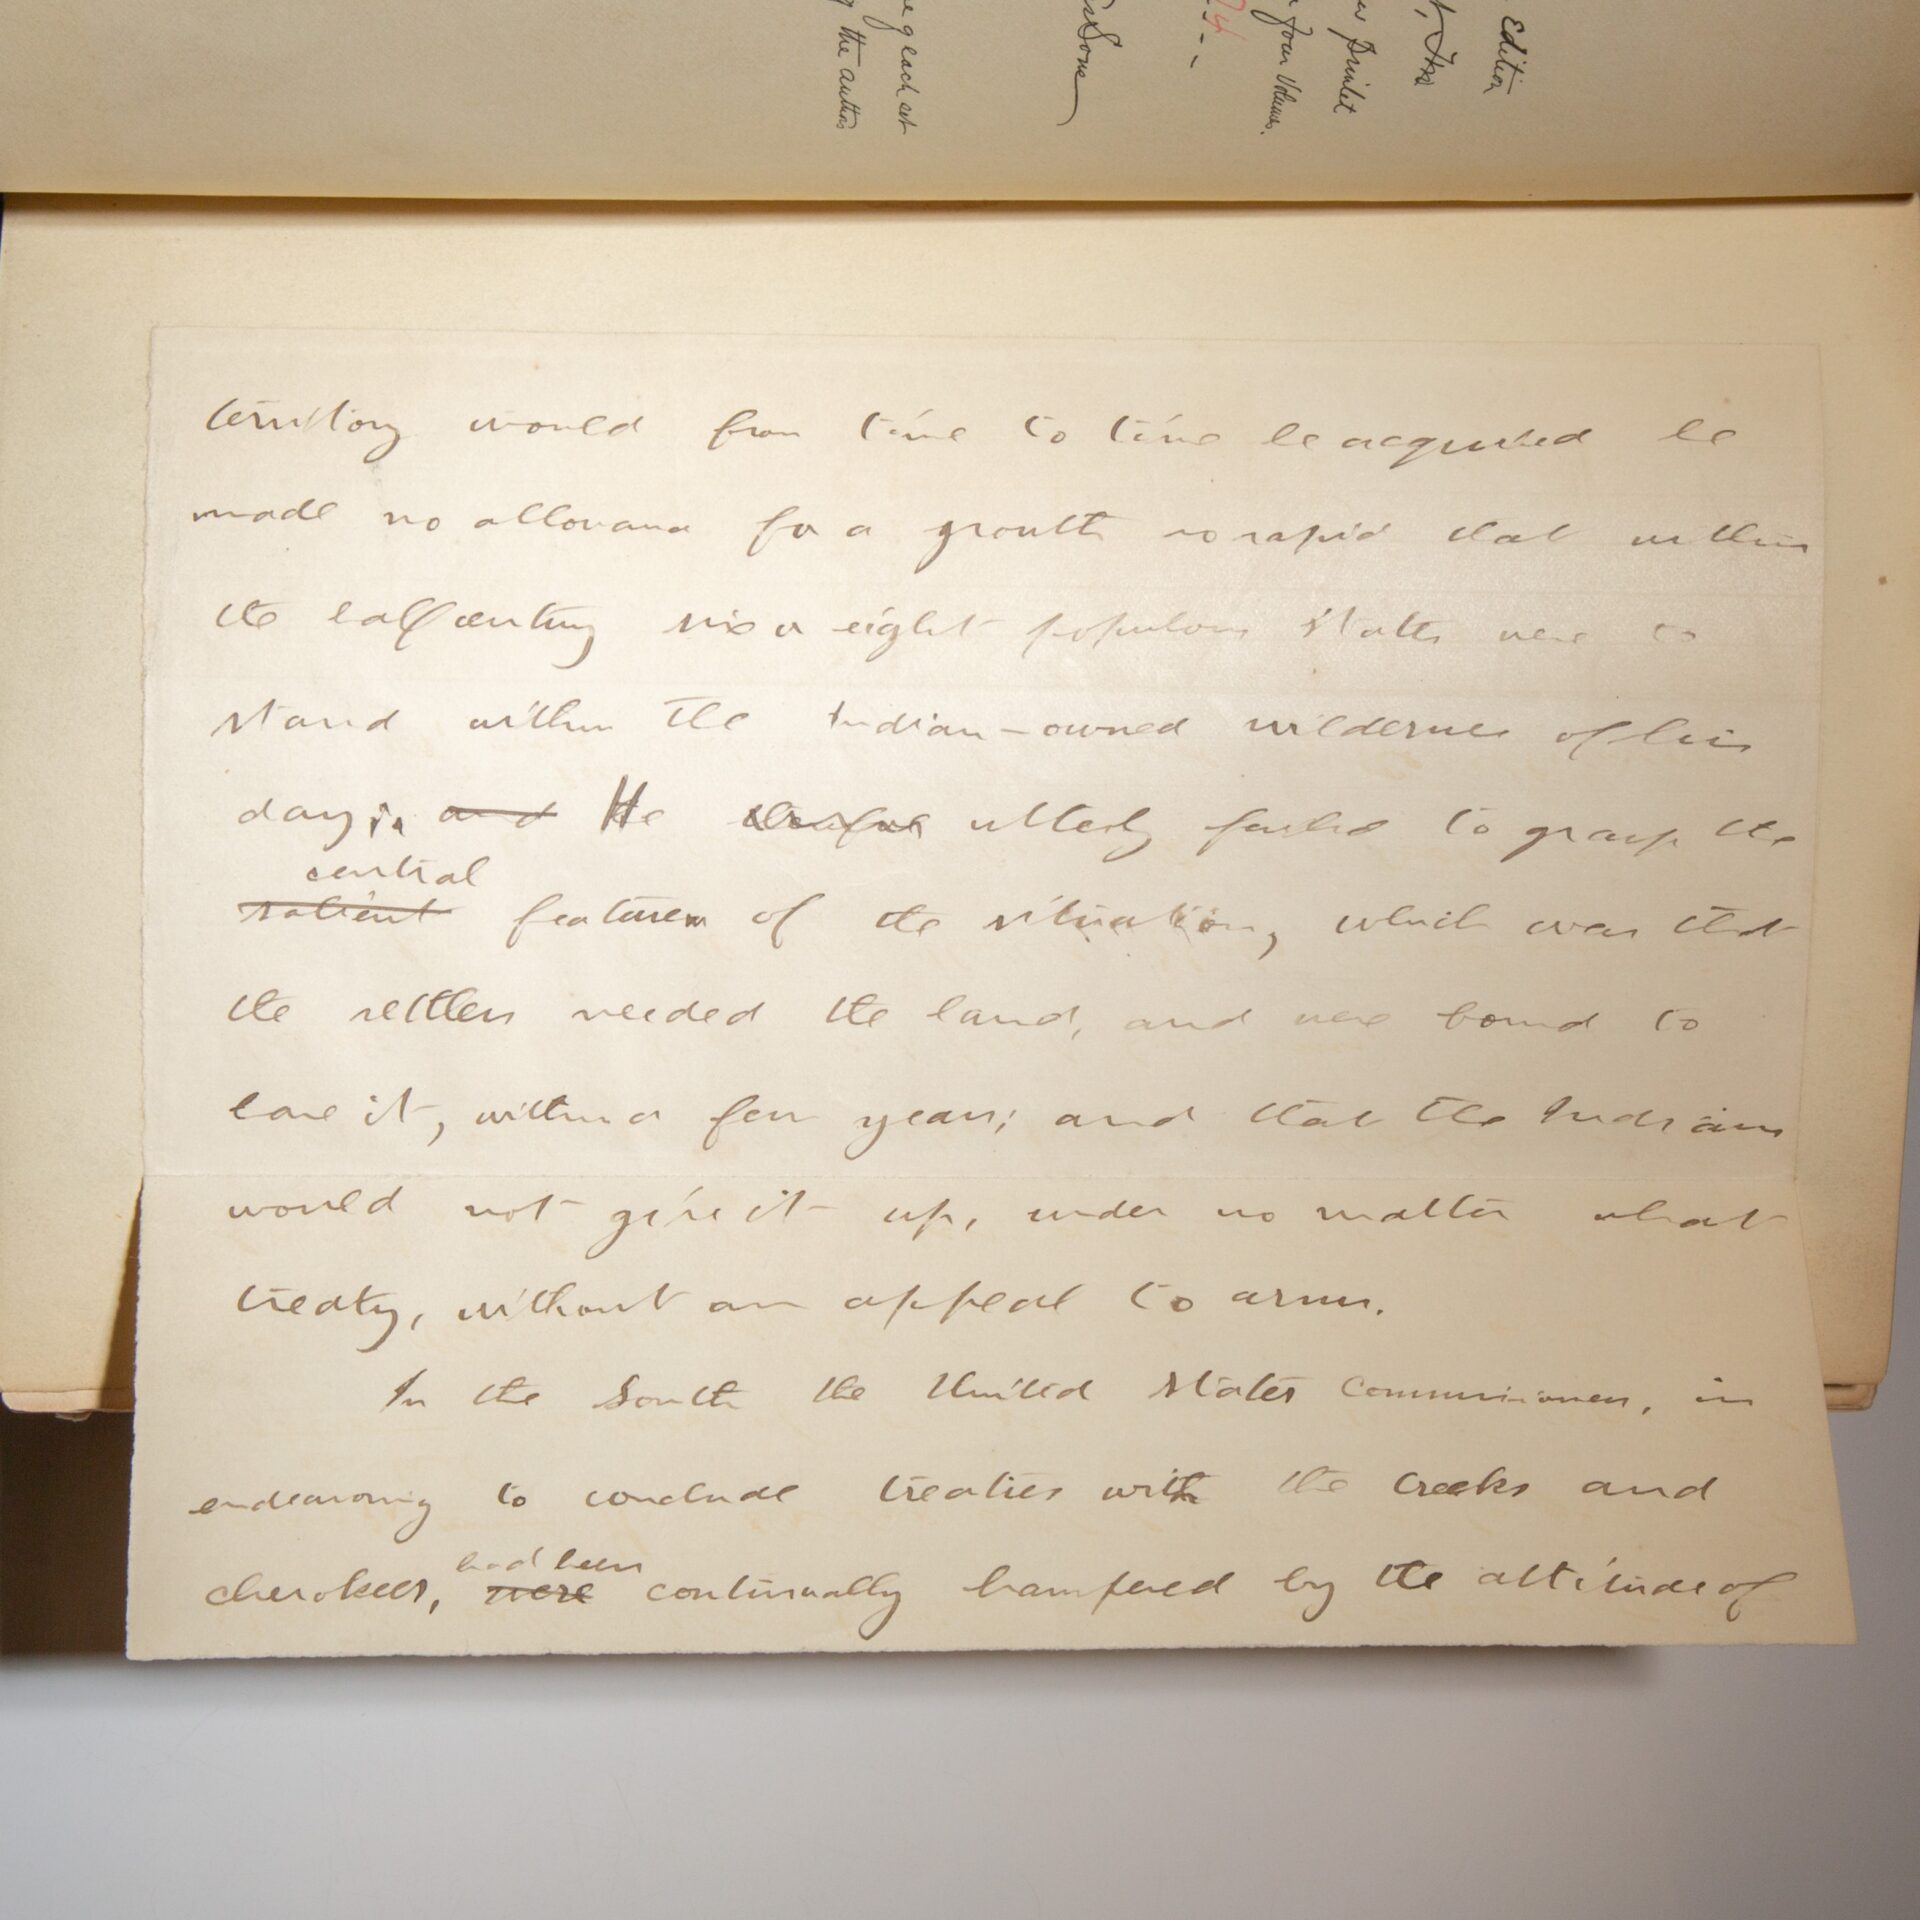 Edition
Four Volumes.
g each set
the author
territory would from time to time be acquired he
made no allowance for a growth so rapid that within
the half century six or eight populous states were to
stand within the Indian-owned wilderness of his
day; and He utterly failed to grasp the
central
salient features of the situation, which was that
the settlers needed the land, and were bound to
have it, within a few years; and that the Indians
would not give it up, under no matter what
treaty, without an appeal to arms.
In the South the United States Commissioners, in
endeavoring to conclude treaties with the Creeks and
had been
Cherokees, were continually hampered by the attitude of